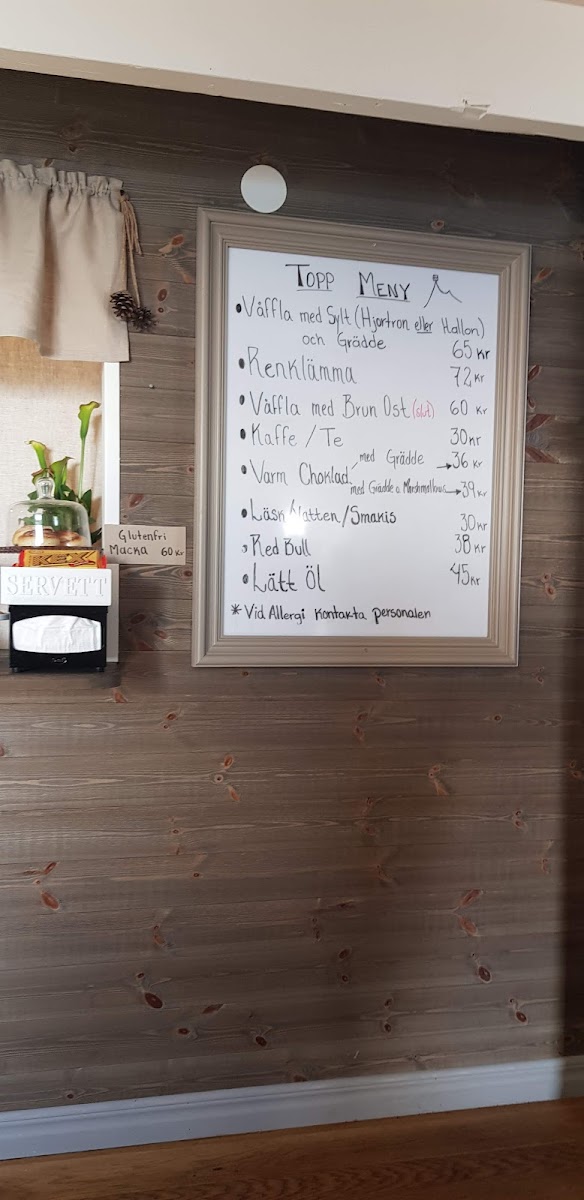 TOPP MENY
• Våffla med Sylt (Hjortron eller Hallon)
och Grädde 65 Kr
• Renklämma 72 Kr
• Våffla med Brun Ost (slut) 60 Kr
• Kaffe / Te 30 Kr
• Varm Choklad med Grädde → 36 Kr
med Grädde o. Marshmallows → 39 Kr
• Läsk/Vatten/Smakis 30 Kr
• Red Bull 38 Kr
• Lätt Öl 45 Kr
* Vid Allergi Kontakta personalen
Glutenfri
Macka 60 Kr
SERVETT